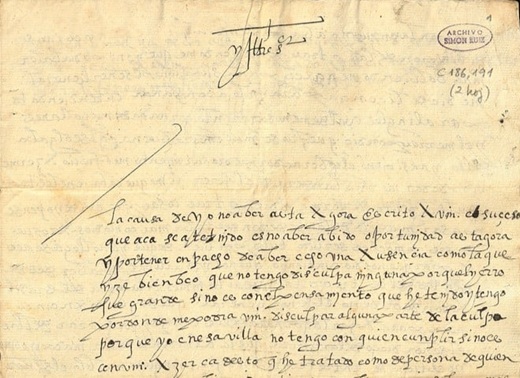 1
ARCHIVO
SIMON RUIZ
C 186, 191
(2 hoj)
yllre sor
la causa de yo no aber asta agora escrito a vm. el suceso
que aca se a tenido es no aber abido oportunidad asta gora
y por tener enpacho de aber
yze bien beo que no tengo disculpa ninguna porque my erro
fue grande sino es con el pensamiento que he tenido y tengo
por donde me podra vm. disculpar alguna parte de la culpa
porque yo en esa villa no tengo con quien cunplir sino es
con vm. a zerca desto q he tratado como de persona de quien